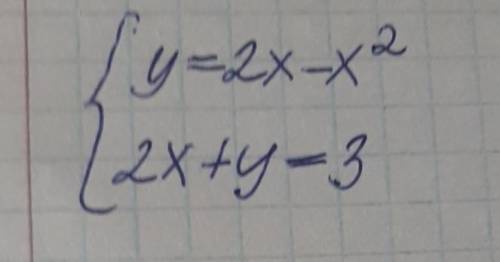 y=2x-x²
2x+y=3